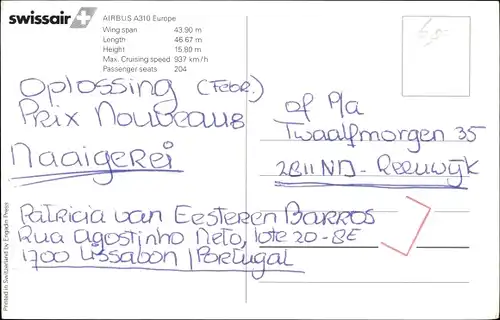 swissair
AIRBUS A310 Europe
Wing span 43.90 m
Length 46.67 m
Height 15.80 m
Max. Cruising speed 937 km/h
Passenger seats 204
Oplossing (Febr.)
Prix Nouveaus
Naaigerei
Patricia van Eesteren Barros
Rua Agostinho Neto, lote 20-8E
1700 Lissabon / Portugal
of P/a
Twaalfmorgen 35
2811 ND - Reeuwijk
Printed in Switzerland by Engadin Press